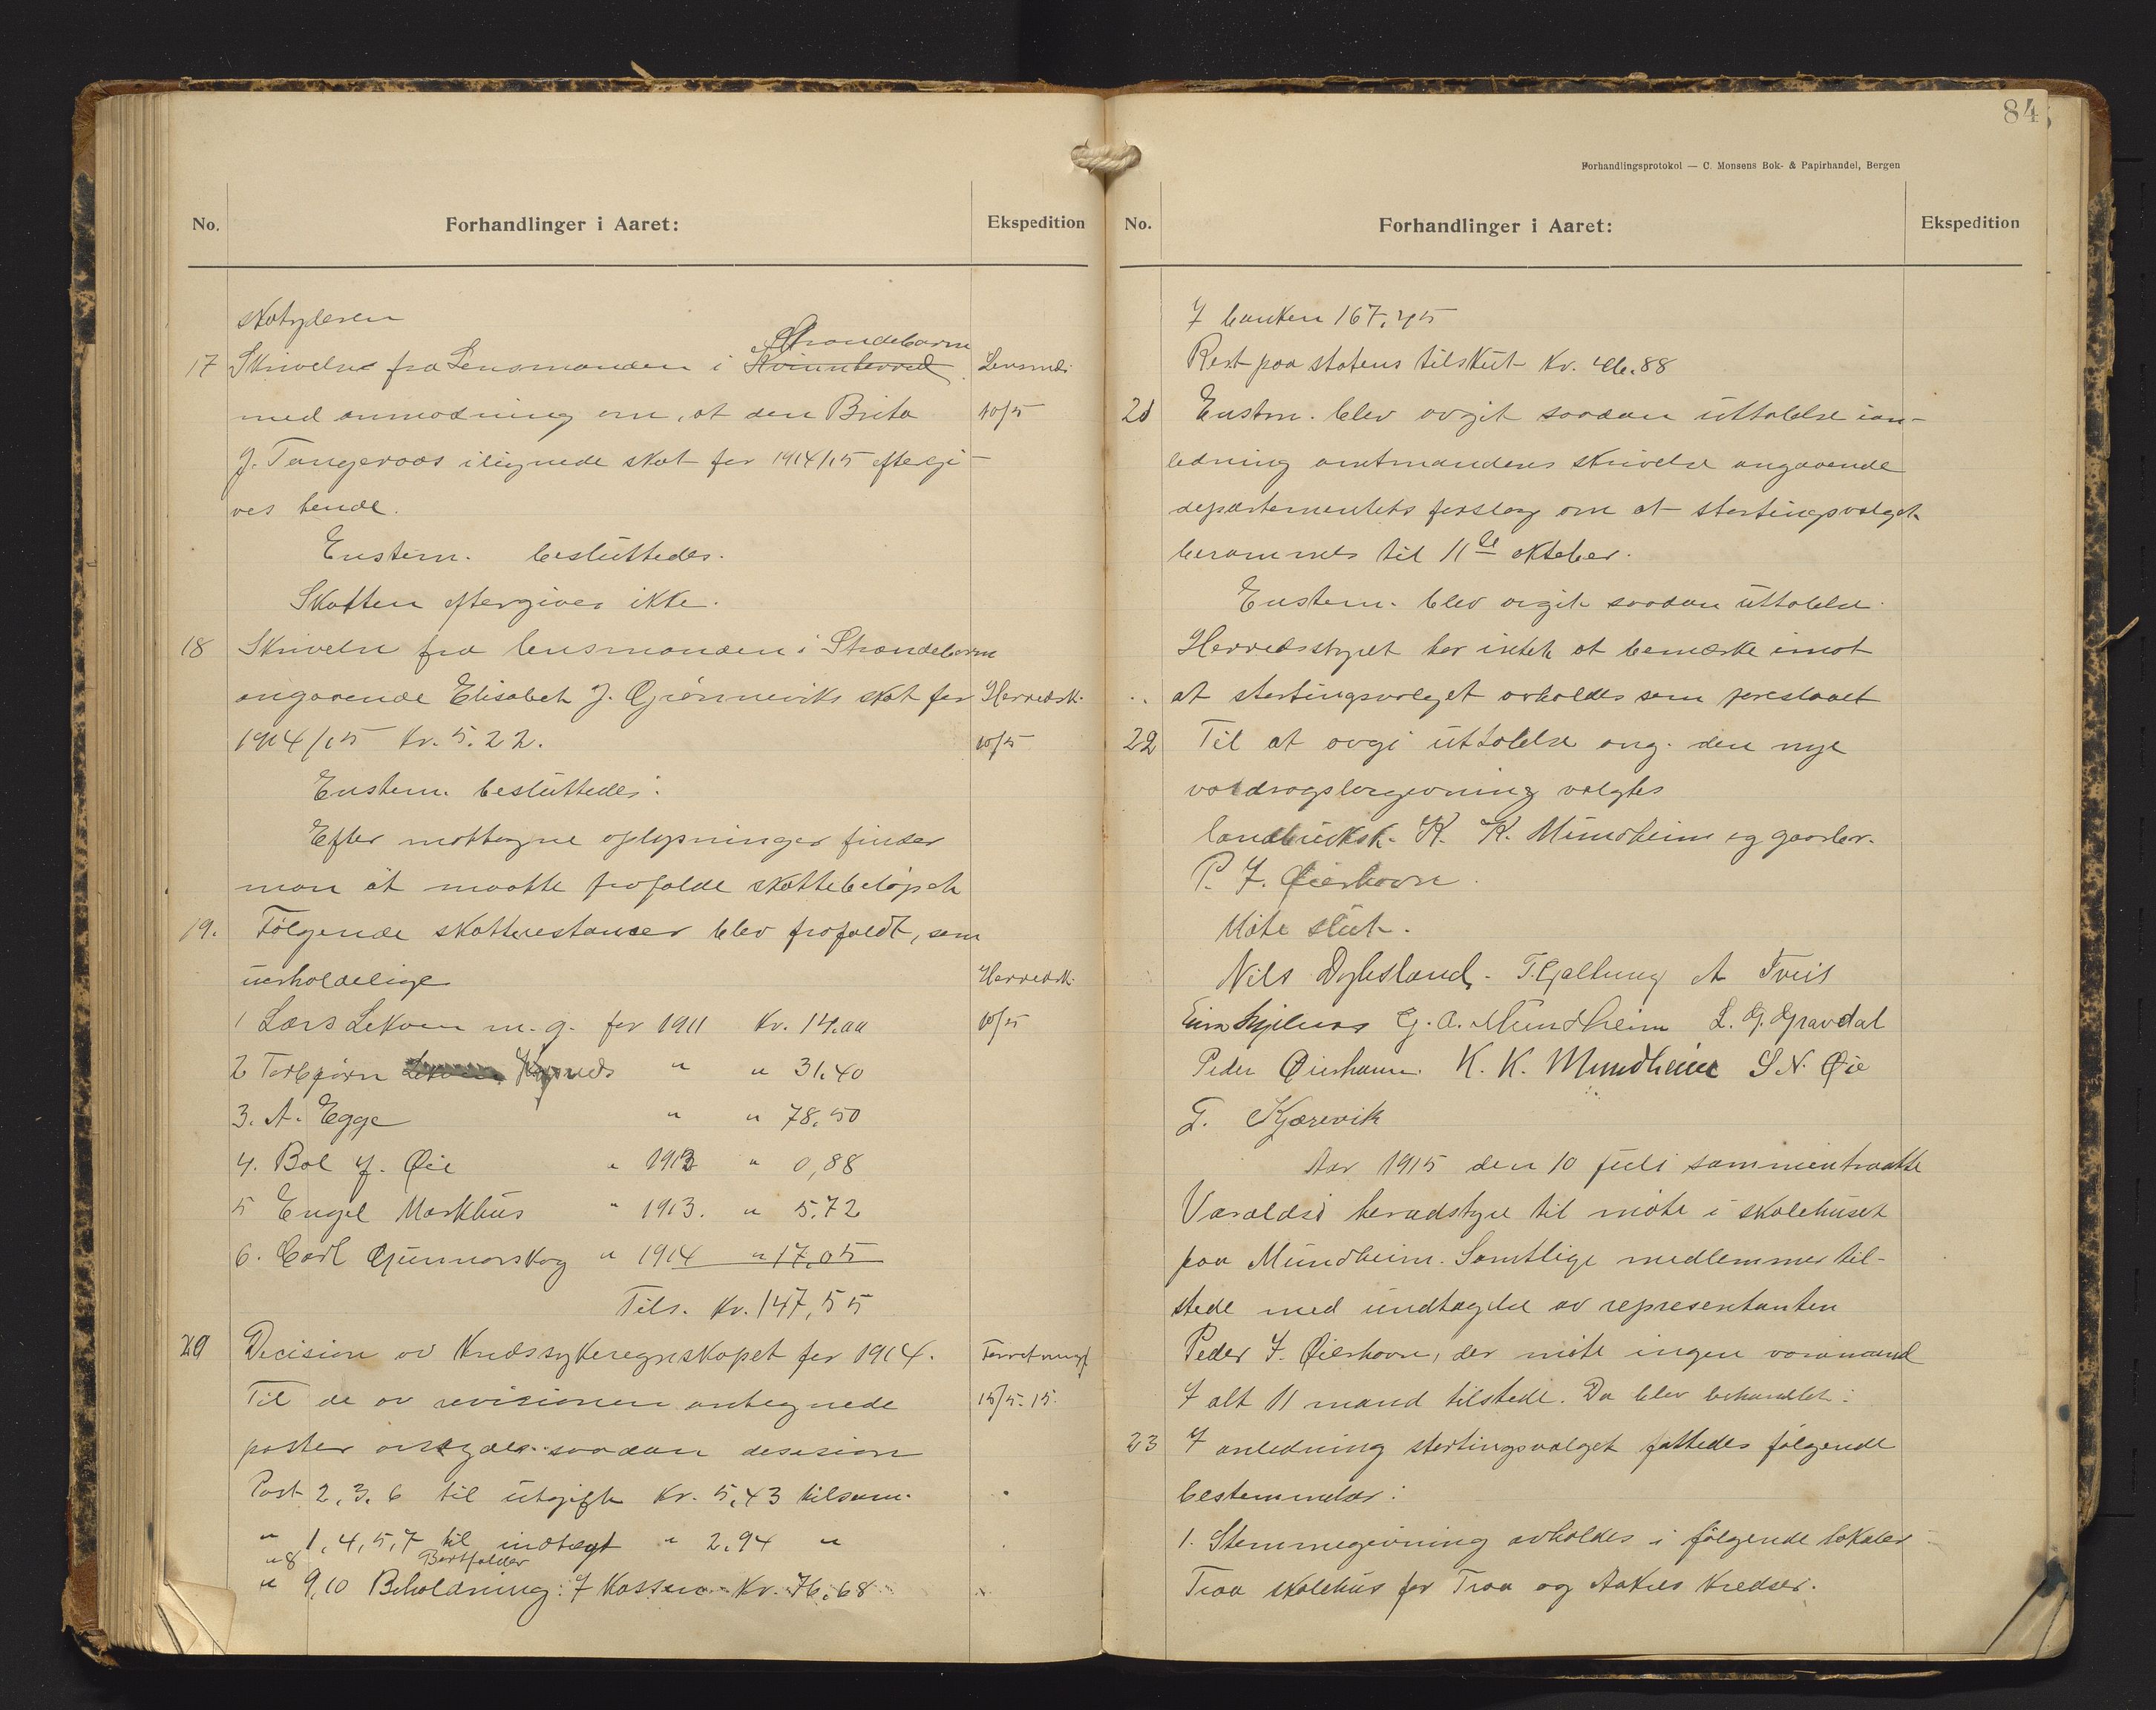 No.
Forhandlinger i Aaret:
Ekspedition
skatyderen
Strandebarm
17 Skrivelse fra Lensmanden i Kvinnherred Lensmd.
med anmodning om, at den Brita 10/5
J. Tangeraas ilignede skat for 1914/15 eftergi-
ves hende.
Enstem. besluttedes.
Skatten eftergives ikke.
18 Skrivelse fra lensmanden i Strandebarm
angaaende Elisabet J. Gjønneviks skat for Herredsk.
1914/15 kr. 5.22. 10/5
Enstem. besluttedes:
Efter mottagne oplysninger finder
man at maatte frafalde skattebeløpet
19. Følgende skatterestanser blev frafaldt, som
uerholdelige Herredsk.
1 Lars Lekven m. g. for 1911 kr. 14.00 10/5
2 Torbjørn " " 31.40
3. A. Egge " " 78.50
4. Bol J. Øie " 1913 " 0,88
5 Engel Markhus " 1913. " 5.72
6. Carl Gunnarskog " 1914 " 17.05
Tils. kr. 147,55
20 Decision av kredssykeregnskapet for 1914.
Til de av revisionen antegnede 15/5-15.
poster avsydes saadan desision
Post 2, 3, 6 til utgift kr. 5,43 tilsam.
" 1, 4, 5, 7 til indtægt " 2.94 "
" 8 Bortfalder
" 9,10 Beholdning: I kassen kr. 76,68
84
Forhandlingsprotokol — C. Monsens Bok- & Papirhandel, Bergen
No.
Forhandlinger i Aaret:
Ekspedition
I banken 167,45
Rest paa statens tilskut kr. 46.88
21 Enstm. blev avgit saadan uttalelse ian-
ledning amtmandens skrivelse angaaende
departementets forslag om at stortingsvalget
berammes til 11te oktober.
Enstem. blev avgit saadan uttalelse.
Herredsstyret har intet at bemærke imot
at stortingsvalget avholdes som foreslaaet
22 Til at avgi uttalelse ang. den nye
vasdragslovgivning valgtes
landbruksk. K. K. Mundheim og gaardbr.
P. J. Øierhavn.
Møte slut.
Nils Dyhesland. T. Gjeltung A Tveit
G. A. Mundheim L. G. Gravdal
Peder Øierhavn. K. K. Mundheim S N. Øie
T. Kjærevik
Aar 1915 den 10 juli sammentraatte
Varaldsø heradstyre til møte i skolehuset
paa Mundheim. Samtlige medlemmer til-
stede med undtagelse av representanten
Peder J. Øierhavn, der møtte ingen varamand
I alt 11 mand tilstede. Da blev behandlet:
23 I anledning stortingsvalget fattedes følgende
bestemmelser:
1. Stemmegivning avholdes i følgende lokaler
Traa skolehus for Traa og Aakres kredser.